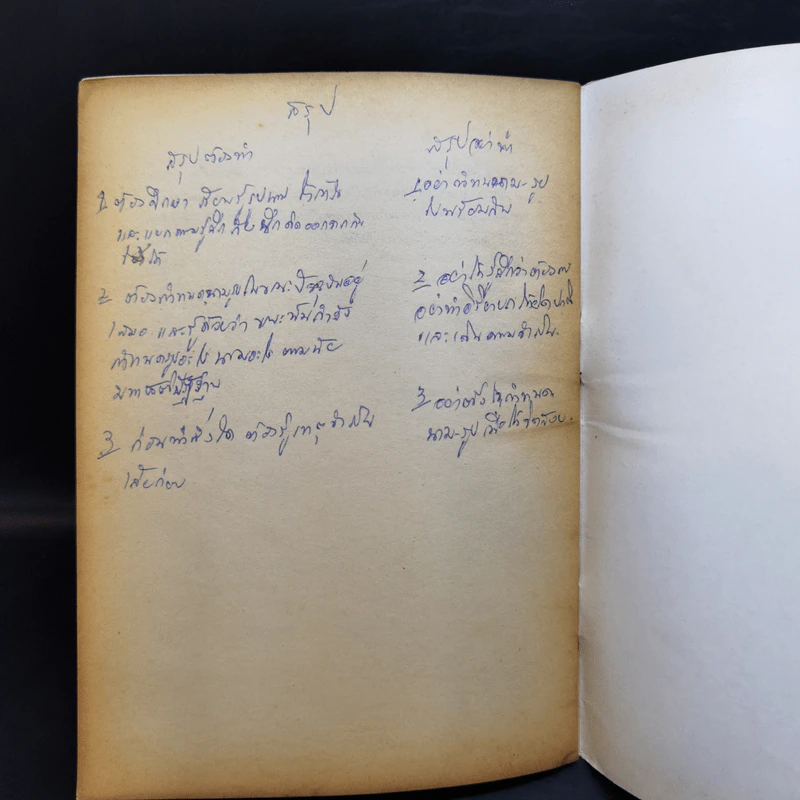 สรุป
สรุปต้องทำ
1 ต้องศึกษา เรียนรู้รูปนาม ให้เข้าใจ
และแยกความรู้สึก กับ นึกคิดออกจากกัน
ให้ได้
2 ต้องกำหนดนามรูปในขณะปัจจุบันอยู่
เสมอ และรู้ด้วยว่า ขณะนั้นกำลัง
กำหนดรูปอะไร นามอะไร ตามนัย
มหาสติปัฏฐาน
3 ก่อนทำสิ่งใด ต้องรู้เหตุจำเป็น
เสียก่อน
สรุปอย่าทำ
1 อย่ากำหนดนาม-รูป
ไปพร้อมกัน
2 อย่าให้รู้สึกว่าต้อง
อย่าทำอิริยาบถ
และเกินความจำเป็น
3 อย่าตั้งใจกำหนด
นาม-รูป เพื่อให้